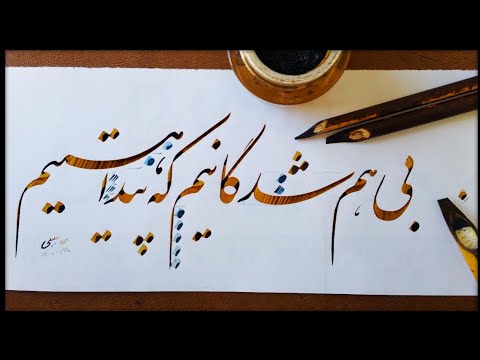 بی هم شدگانیم که پیدا هستیم